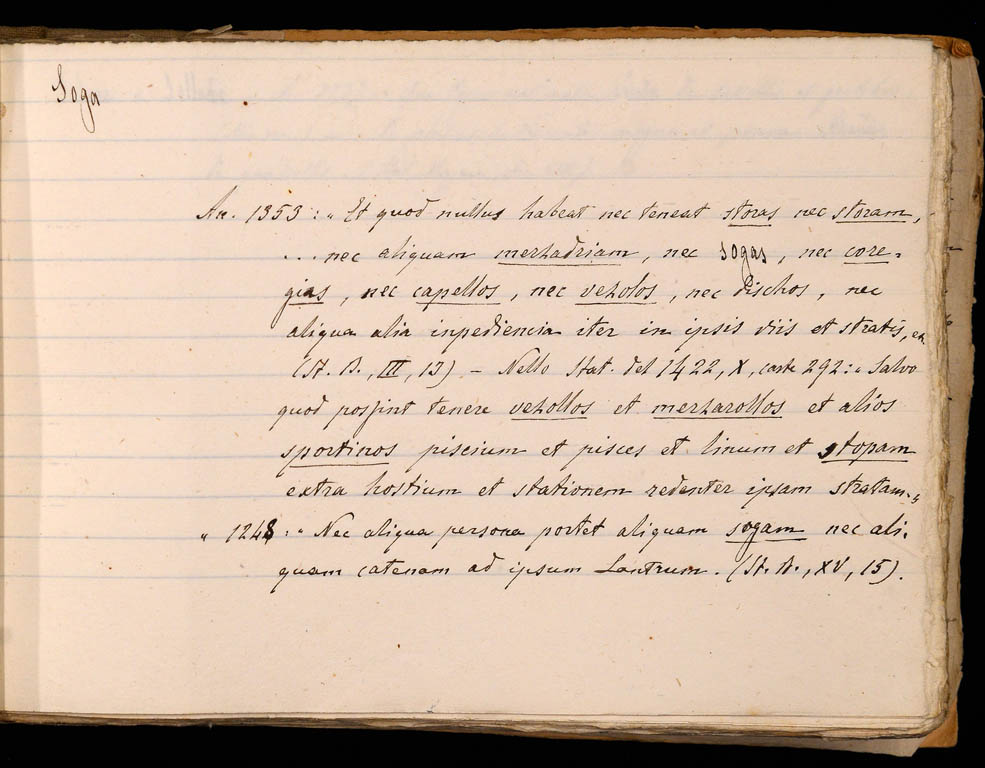 Soga
An. 1353 : „ Et quod nullus habeat nec teneat storas nec storam,
... nec aliquam merzadriam, nec sogas, nec core-
gias, nec capellos, nec vezolos, nec dischos, nec
aliqua alia inpediencia iter in ipsis viis et stratis, etc.
(St. B., III, 13) - Nello Stat. del 1422, X, carte 292: „ Salvo
quod possint tenere vezollos et merzarollos et alios
sportinos piscium et pisces et linum et stopam
extra hostium et stationem redenter ipsam stratam."
„ 1248 : „ Nec aliqua persona portet aliquam sogam nec ali-
quam catenam ad ipsum Lautrum. (St. A., XV, 15).